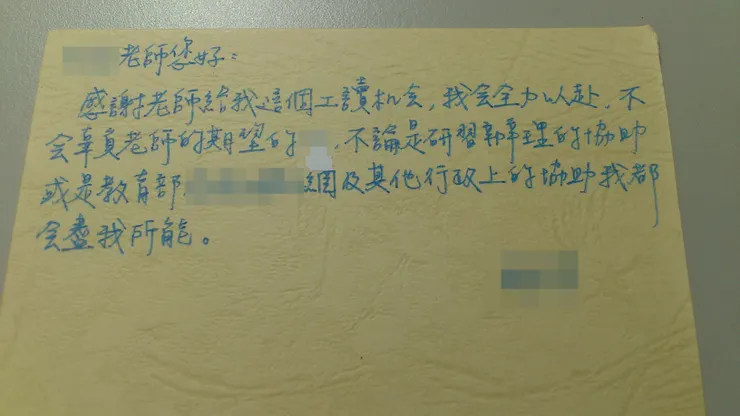 老師您好：
感謝老師給我這個工讀机会，我会全力以赴，不
会辜負老師的期望的，不論是研習辦理的協助
或是教育部網及其他行政上的協助我都
会盡我所能。